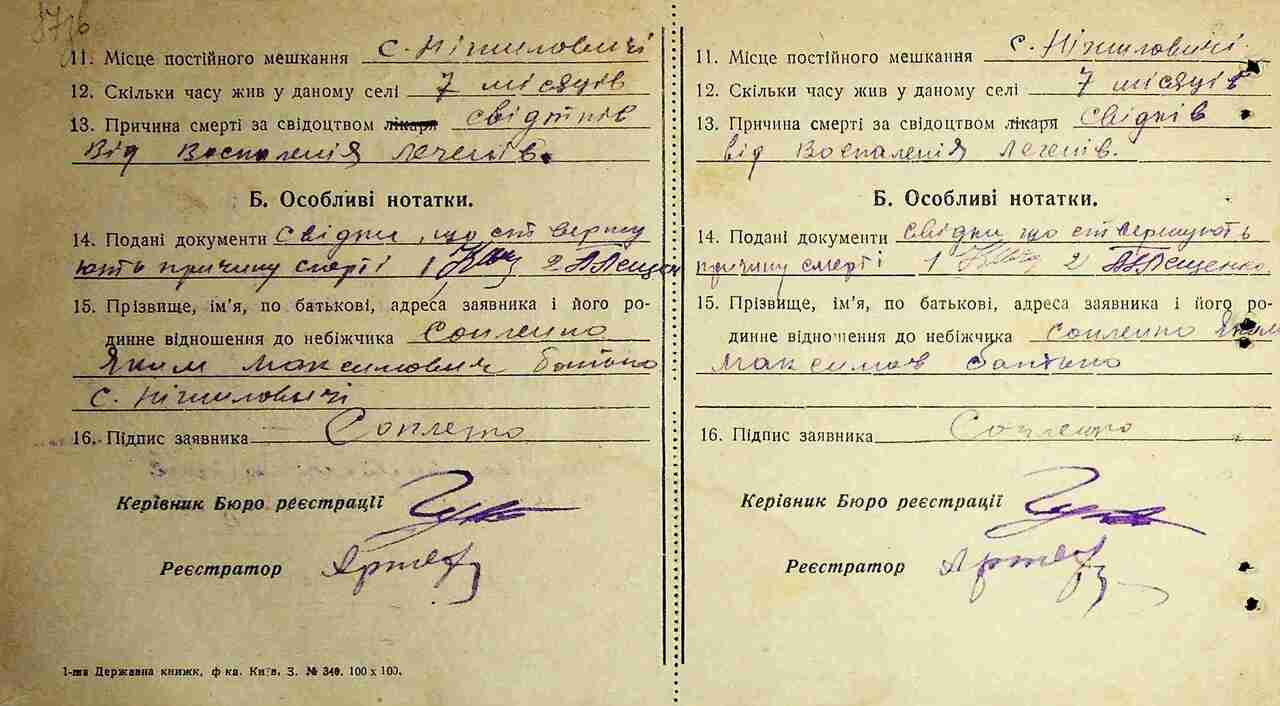 11. Місце постійного мешкання с. Ніжиловичі
12. Скільки часу жив у даному селі 7 місяців
13. Причина смерті за свідоцтвом лікаря свідтків
Від Воспаленія Легенів.
Б. Особливі нотатки.
14. Подані документи Свідки, що ствержу
ють причину смерті 1 2 П Пещен
15. Прізвище, ім'я, по батькові, адреса заявника і його ро-
динне відношення до небіжчика Сопленко
Яким Максимович батько
с. Ніжиловичі
16. Підпис заявника Сопленко
Керівник Бюро реєстрації
Реєстратор
1-ша Державна книжк. ф-ка. Київ. З. № 340. 100 x 100.
11. Місце постійного мешкання с. Ніжиловичі
12. Скільки часу жив у даному селі 7 місяців
13. Причина смерті за свідоцтвом лікаря Свідків
Від Воспаленія Легенів.
Б. Особливі нотатки.
14. Подані документи Свідки що ствержують
причину смерті 1 2 Пещенко
15. Прізвище, ім'я, по батькові, адреса заявника і його ро-
динне відношення до небіжчика Сопленко Яким
Максимов батько
16. Підпис заявника Сопленко
Керівник Бюро реєстрації
Реєстратор